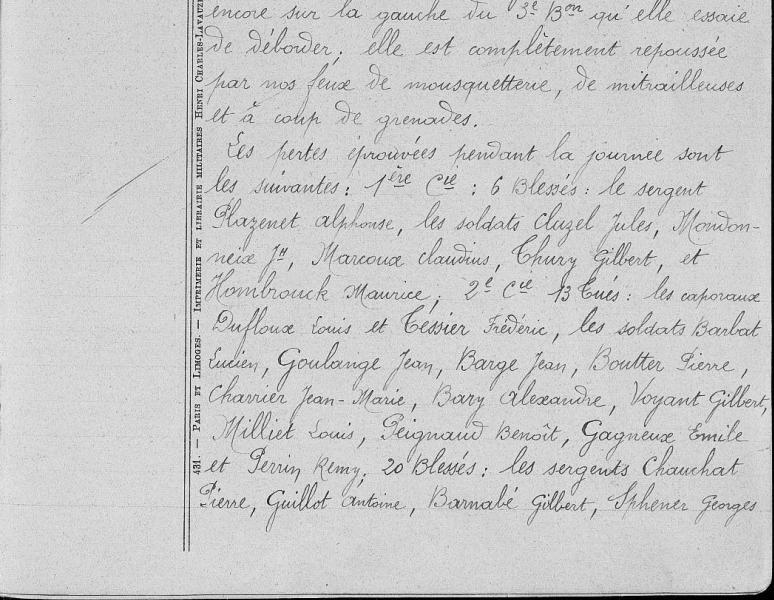 encore sur la gauche du 3e Bon qu'elle essaie
de déborder; elle est complètement repoussée
par nos feux de mousquetterie, de mitrailleuses
et à coup de grenades.
Les pertes éprouvées pendant la journée sont
les suivantes: 1ère Cie : 6 Blessés: le sergent
Plazenet Alphonse, les soldats Cluzel Jules, Mondon-
neix Jh, Marcoux Claudius, Thury Gilbert, et
Hombrouck Maurice; 2e Cie 13 Tués: les caporaux
Dufloux Louis et Tessier Frédéric, les soldats Barbat
Lucien, Goulange Jean, Barge Jean, Boutter Pierre,
Charrier Jean-Marie, Bary Alexandre, Voyant Gilbert,
Milliet Louis, Peignaud Benoît, Gagneux Emile
et Perrin Remy; 20 Blessés: les sergents Chauchat
Pierre, Guillot Antoine, Barnabé Gilbert, Sphener Georges
431. — PARIS ET LIMOGES. — IMPRIMERIE ET LIBRAIRIE MILITAIRES HENRI CHARLES-LAVAUZE